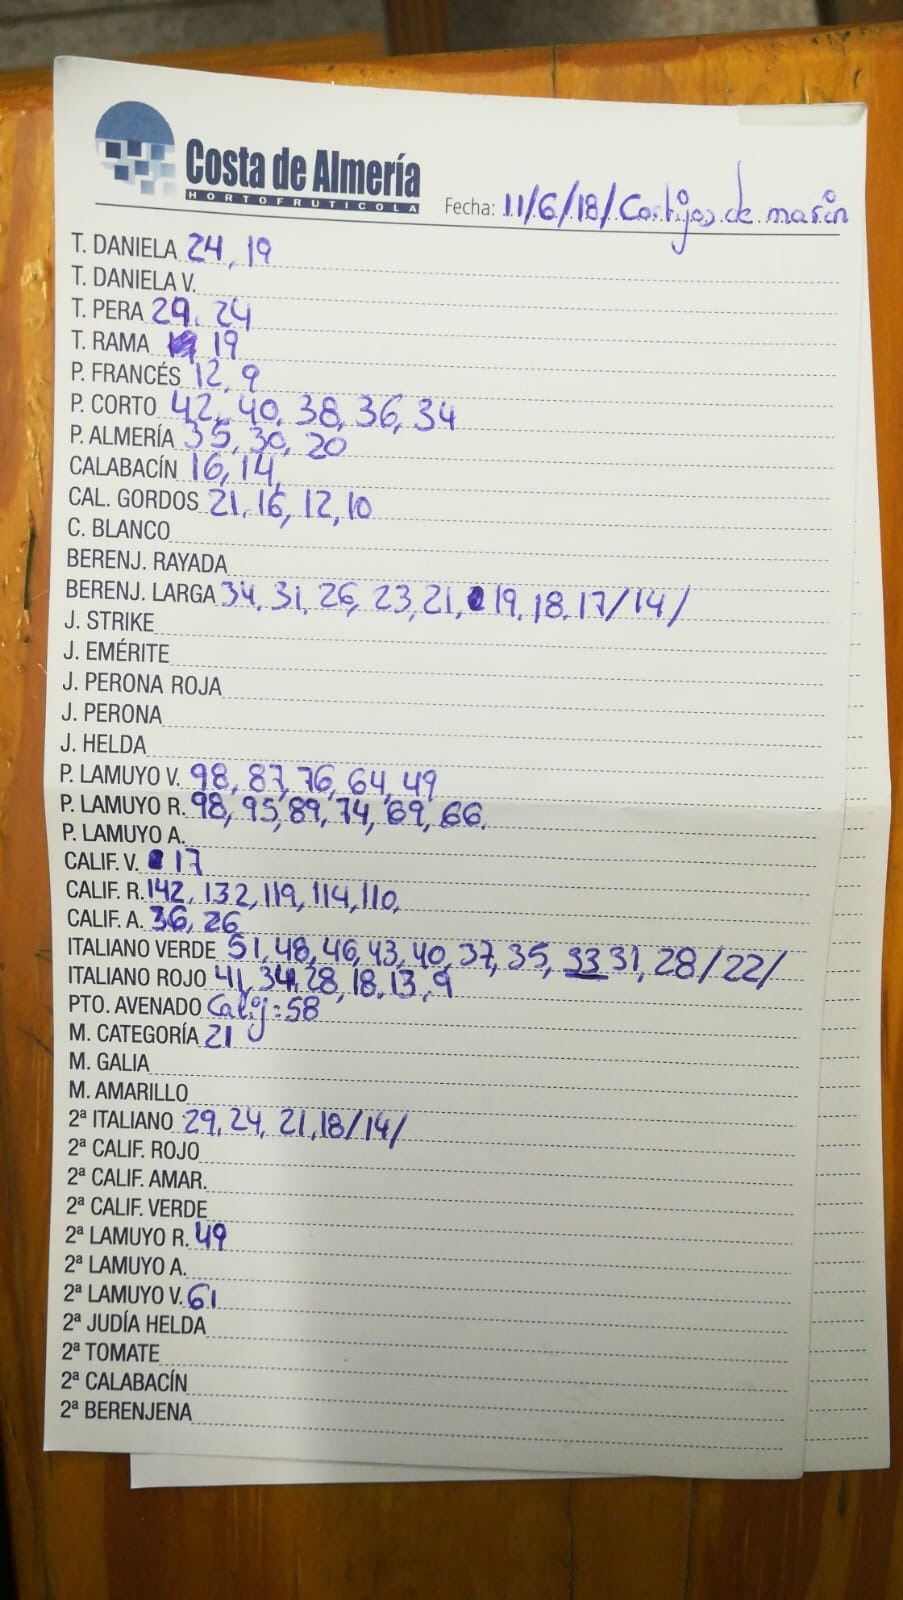 Costa de Almería
HORTOFRUTICOLA
Fecha: 11/6/18/ Cortijos de marin
T. DANIELA 24, 19
T. DANIELA V.
T. PERA 29. 24
T. RAMA 19
P. FRANCÉS 12, 9
P. CORTO 42, 40, 38, 36, 34
P. ALMERÍA 35, 30, 20
CALABACÍN 16, 14,
CAL. GORDOS 21, 16, 12, 10
C. BLANCO
BERENJ. RAYADA
BERENJ. LARGA 34, 31, 26, 23, 21, 19, 18, 17/14/
J. STRIKE
J. EMÉRITE
J. PERONA ROJA
J. PERONA
J. HELDA
P. LAMUYO V. 98, 87, 76, 64, 49
P. LAMUYO R. 98, 95, 89, 74, 69, 66.
P. LAMUYO A.
CALIF. V. 17
CALIF. R. 142, 132, 119, 114, 110,
CALIF. A. 36, 26
ITALIANO VERDE 51, 48, 46, 43, 40, 37, 35, 33 31, 28/22/
ITALIANO ROJO 41, 34, 28, 18, 13, 9
PTO. AVENADO Calif: 58
M. CATEGORÍA 21
M. GALIA
M. AMARILLO
2ª ITALIANO 29, 24, 21, 18/14/
2ª CALIF. ROJO
2ª CALIF. AMAR.
2ª CALIF. VERDE
2ª LAMUYO R. 49
2ª LAMUYO A.
2ª LAMUYO V. 61
2ª JUDÍA HELDA
2ª TOMATE
2ª CALABACÍN
2ª BERENJENA